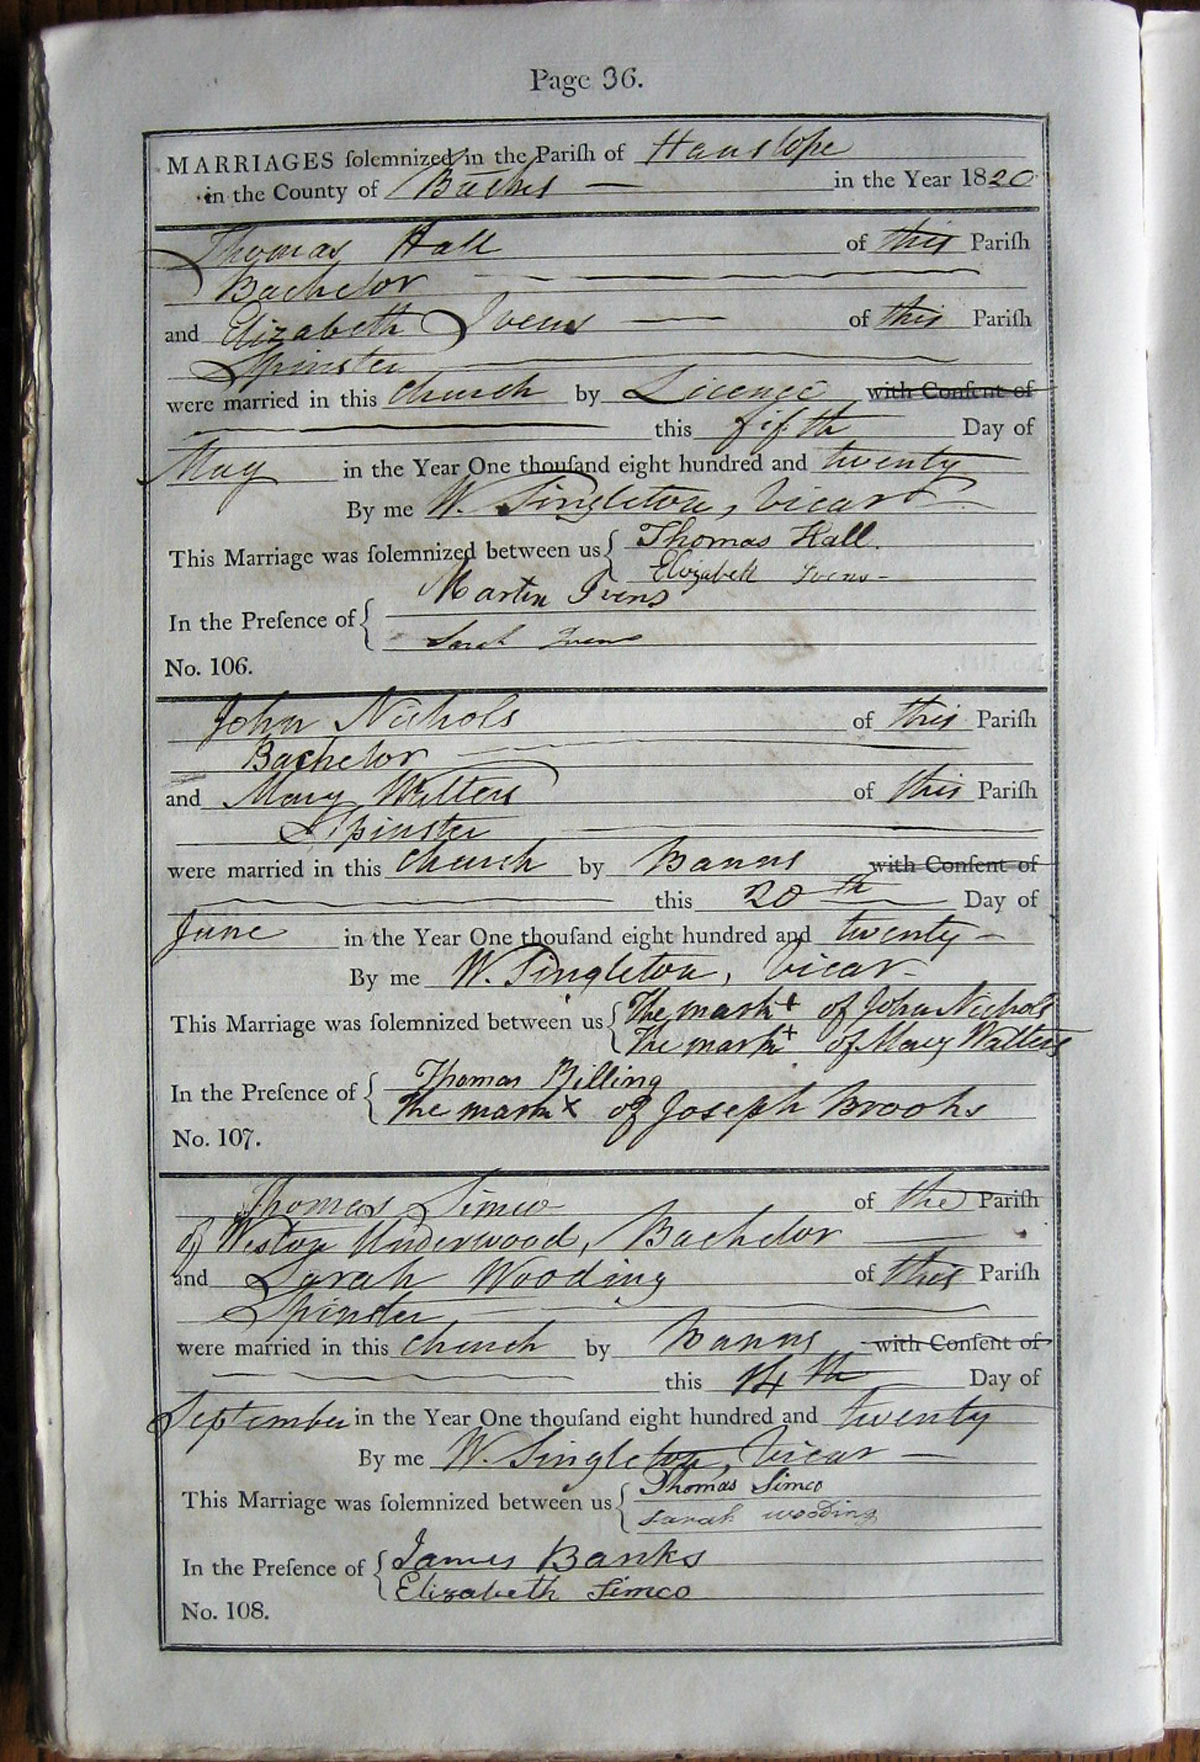 Page 36.
MARRIAGES ſolemnized in the Pariſh of Hanslope
in the County of Bucks — in the Year 1820
Thomas Hall of this Pariſh
Bachelor
and Elizabeth Ivens — of this Pariſh
Spinster
were married in this Church by Licence with Conſent of
this fifth Day of
May in the Year One thouſand eight hundred and twenty
By me W. Singleton, Vicar
This Marriage was ſolemnized between us { Thomas Hall.
Elizabeth Ivens -
In the Preſence of { Martin Ivens
Sarah Ivens
No. 106.
John Nichols of this Pariſh
Bachelor
and Mary Walters of this Pariſh
Spinster
were married in this Church by Banns with Conſent of
this 20th Day of
June in the Year One thouſand eight hundred and twenty -
By me W. Singleton, Vicar -
This Marriage was ſolemnized between us { The mark + of John Nichols
The mark + of Mary Walters
In the Preſence of { Thomas Billing
The mark x of Joseph Brooks
No. 107.
Thomas Simco of the Pariſh
of Weston Underwood, Bachelor
and Sarah Wooding of this Pariſh
Spinster
were married in this Church by Banns with Conſent of
this 14th Day of
September in the Year One thouſand eight hundred and twenty
By me W. Singleton, Vicar —
This Marriage was ſolemnized between us { Thomas Simco
sarah wooding
In the Preſence of { James Banks
Elizabeth Simco
No. 108.